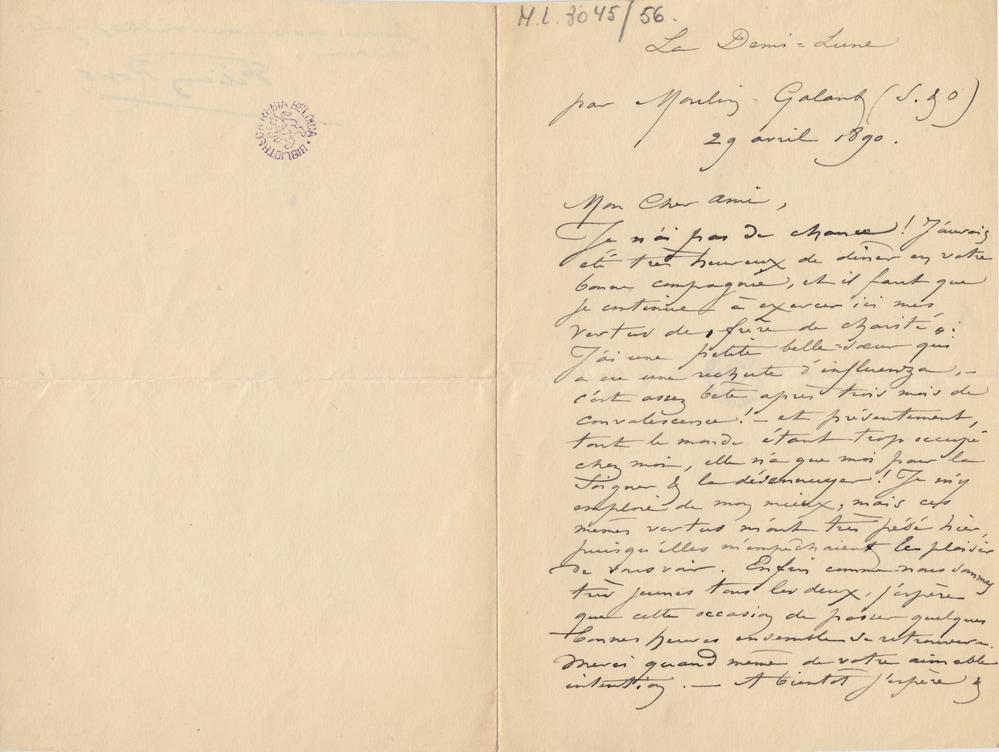 M.L. 3045/56.
BIBLIOTHECA REGIA BELGICA
La Demi=Lune
par Moulin-Galant (S. & O)
29 avril 1890.
Mon Cher ami,
Je n'ai pas de chance! J'aurais
été très heureux de dîner en votre
bonne compagnie, et il faut que
je continue à exercer ici mes
vertus de frère de charité.
J'ai une petite belle=soeur qui
a eu une rechute d'influenza, –
c'est assez bête après trois mois de
convalescence! – et présentement,
tout le monde étant trop occupé
chez moi, elle n'a que moi pour la
soigner & la désennuyer! Je m'y
emploie de mon mieux, mais ces
mêmes vertus m'ont très pesé hier,
puisqu'elles m'empêchaient le plaisir
de vous voir. Enfin comme nous sommes
très jeunes tous les deux, j'espère
que cette occasion de passer quelques
bonnes heures ensemble se retrouvera.
Merci quand même de votre aimable
intention. — A bientôt j'espère &